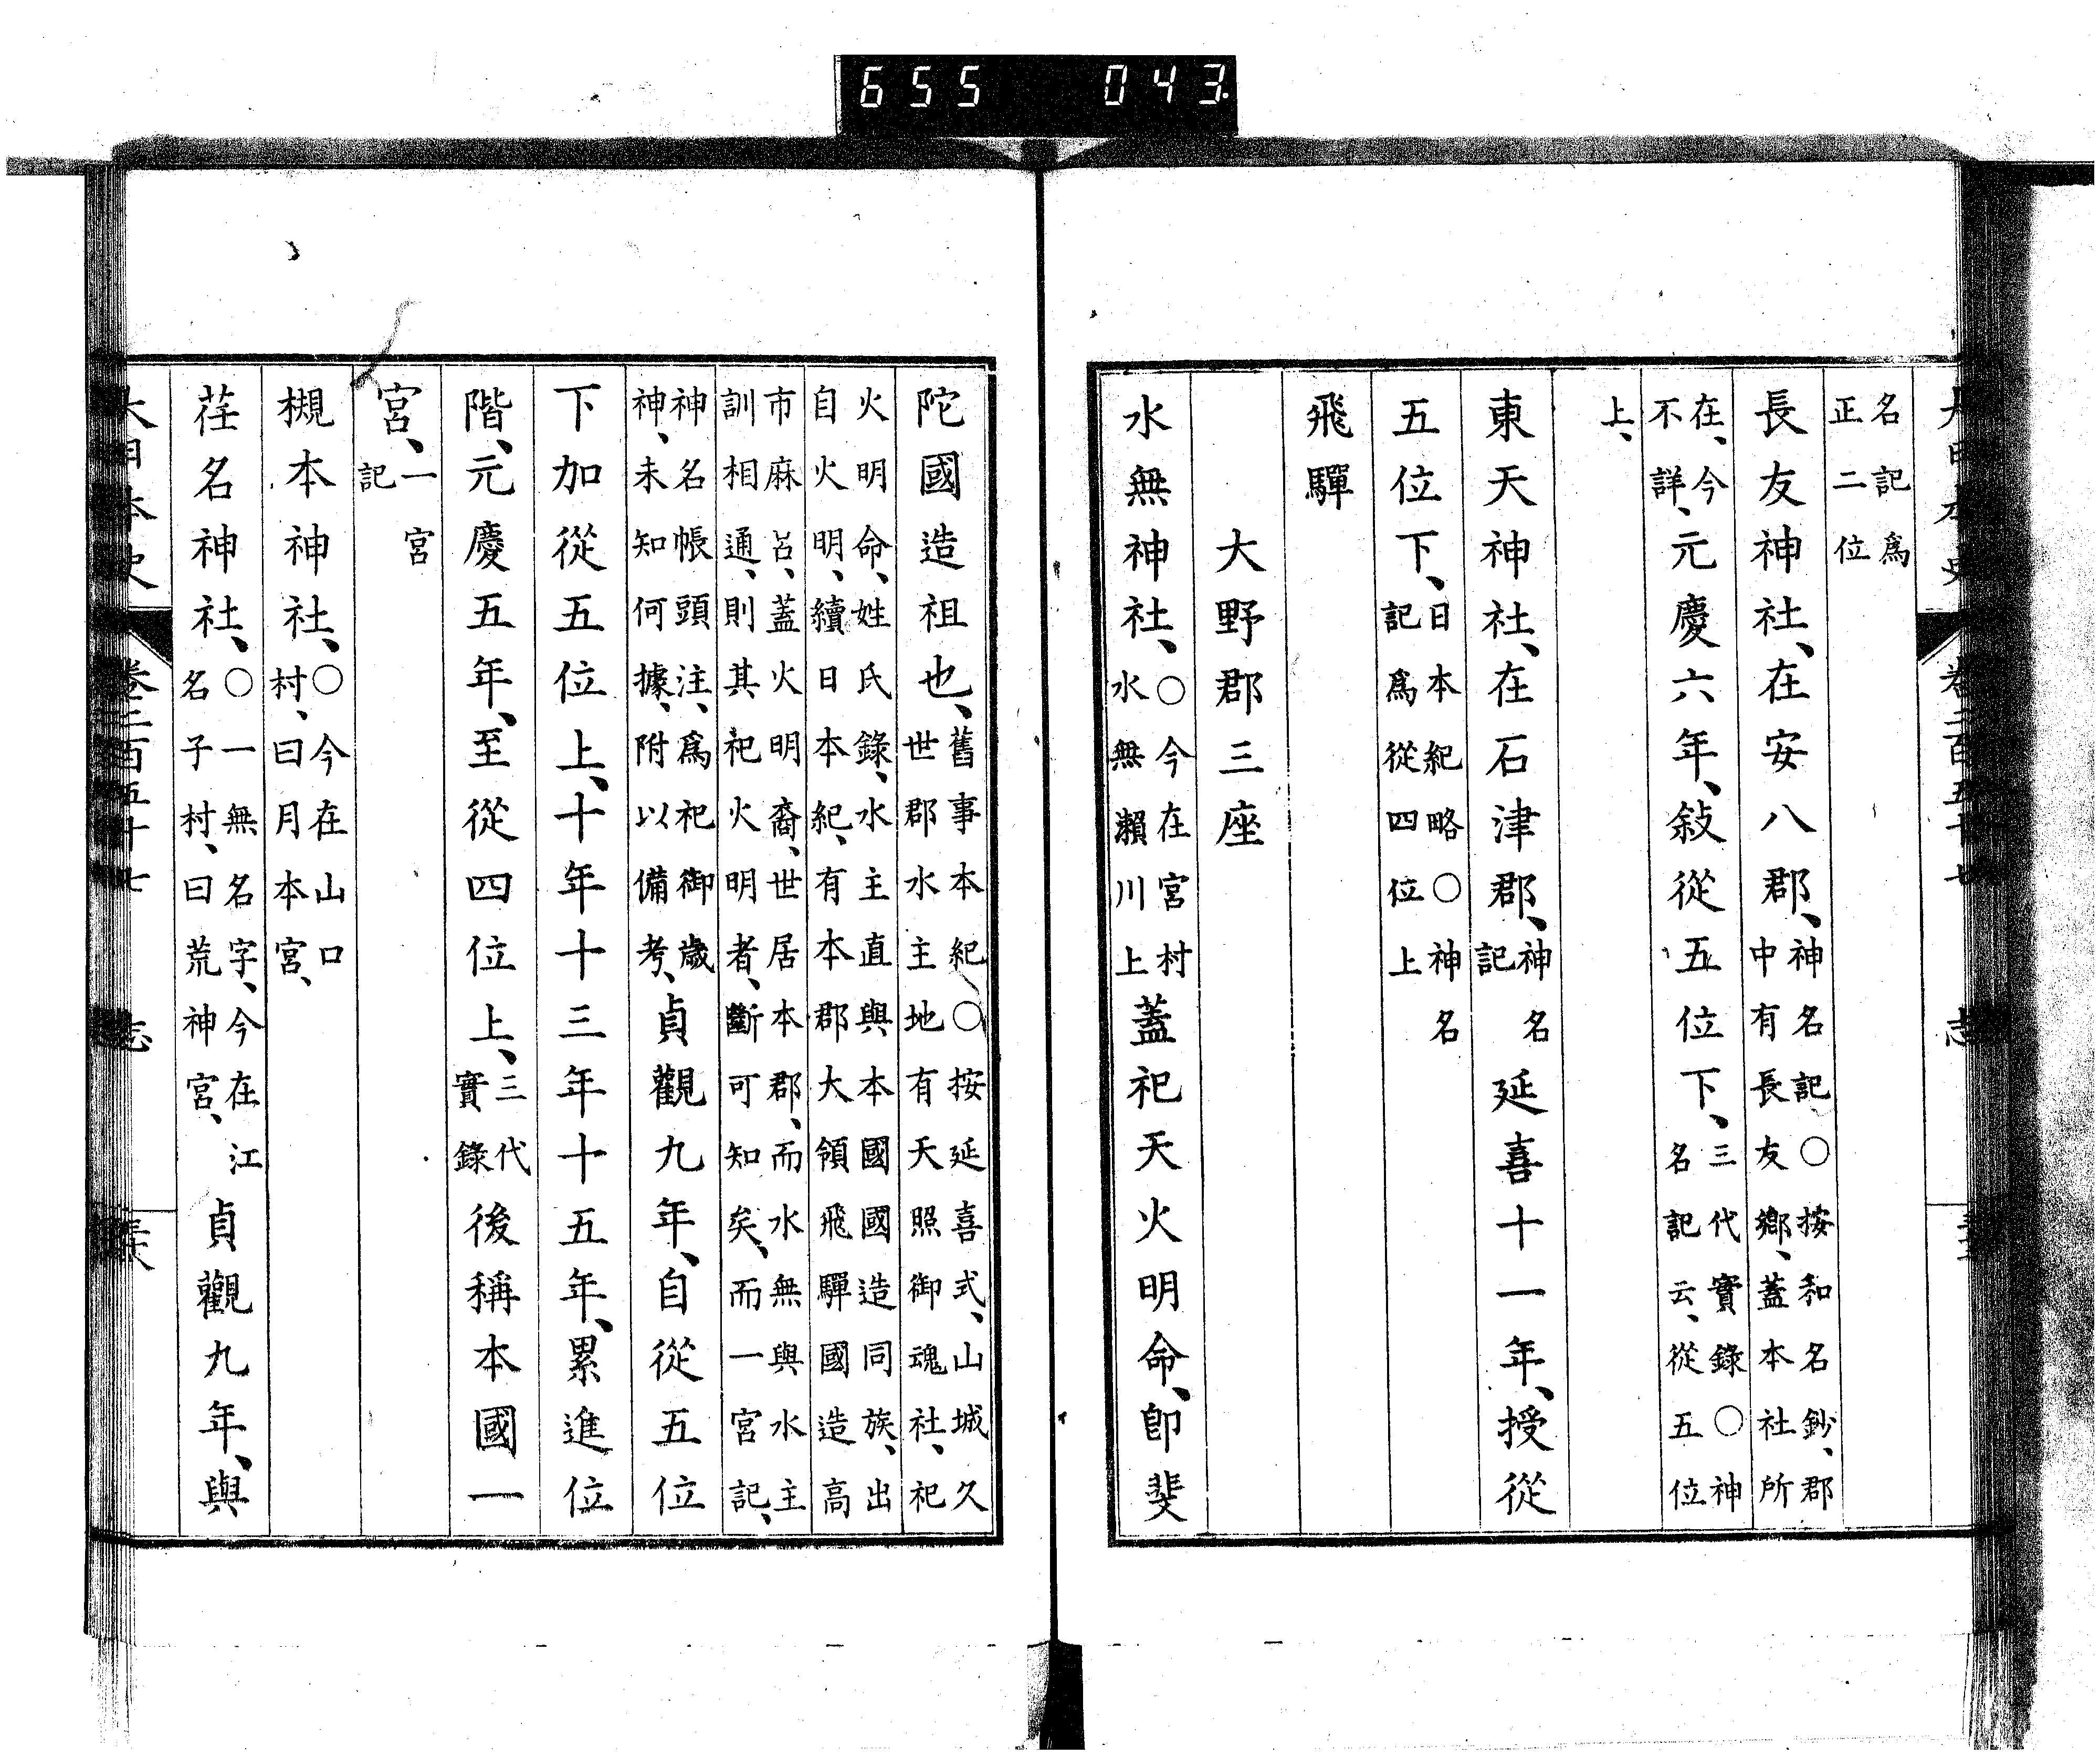 655 043
大日本史 卷二百五十七 志
名記爲正二位
長友神社、在安八郡、神名記○按和名鈔、郡中有長友鄉、蓋本社所
在、今不詳、元慶六年、敍從五位下、三代實錄○神名記云、從五位
上、
東天神社、在石津郡、神名記延喜十一年、授從
五位下、日本紀略○神名記爲從四位上
飛驒
大野郡三座
水無神社、○今在宮村水無瀨川上蓋祀天火明命、卽斐
陀國造祖也、舊事本紀○按延喜式、山城久世郡水主地有天照御魂社、祀
火明命、姓氏錄、水主直與本國國造同族、出自火明、續日本紀、有本郡大領飛驒國造高
市麻呂、蓋火明裔、世居本郡、而水無與水主訓相通、則其祀火明者、斷可知矣、而一宮記、
神名帳頭注、爲祀御歲神、未知何據、附以備考、貞觀九年、自從五位
下加從五位上、十年十三年十五年、累進位
階、元慶五年、至從四位上、三代實錄後稱本國一
宮、一宮記
槻本神社、○今在山口村、曰月本宮、
荏名神社、○一無名字、今在江名子村、曰荒神宮、貞觀九年、與
大日本史 卷二百五十七 志